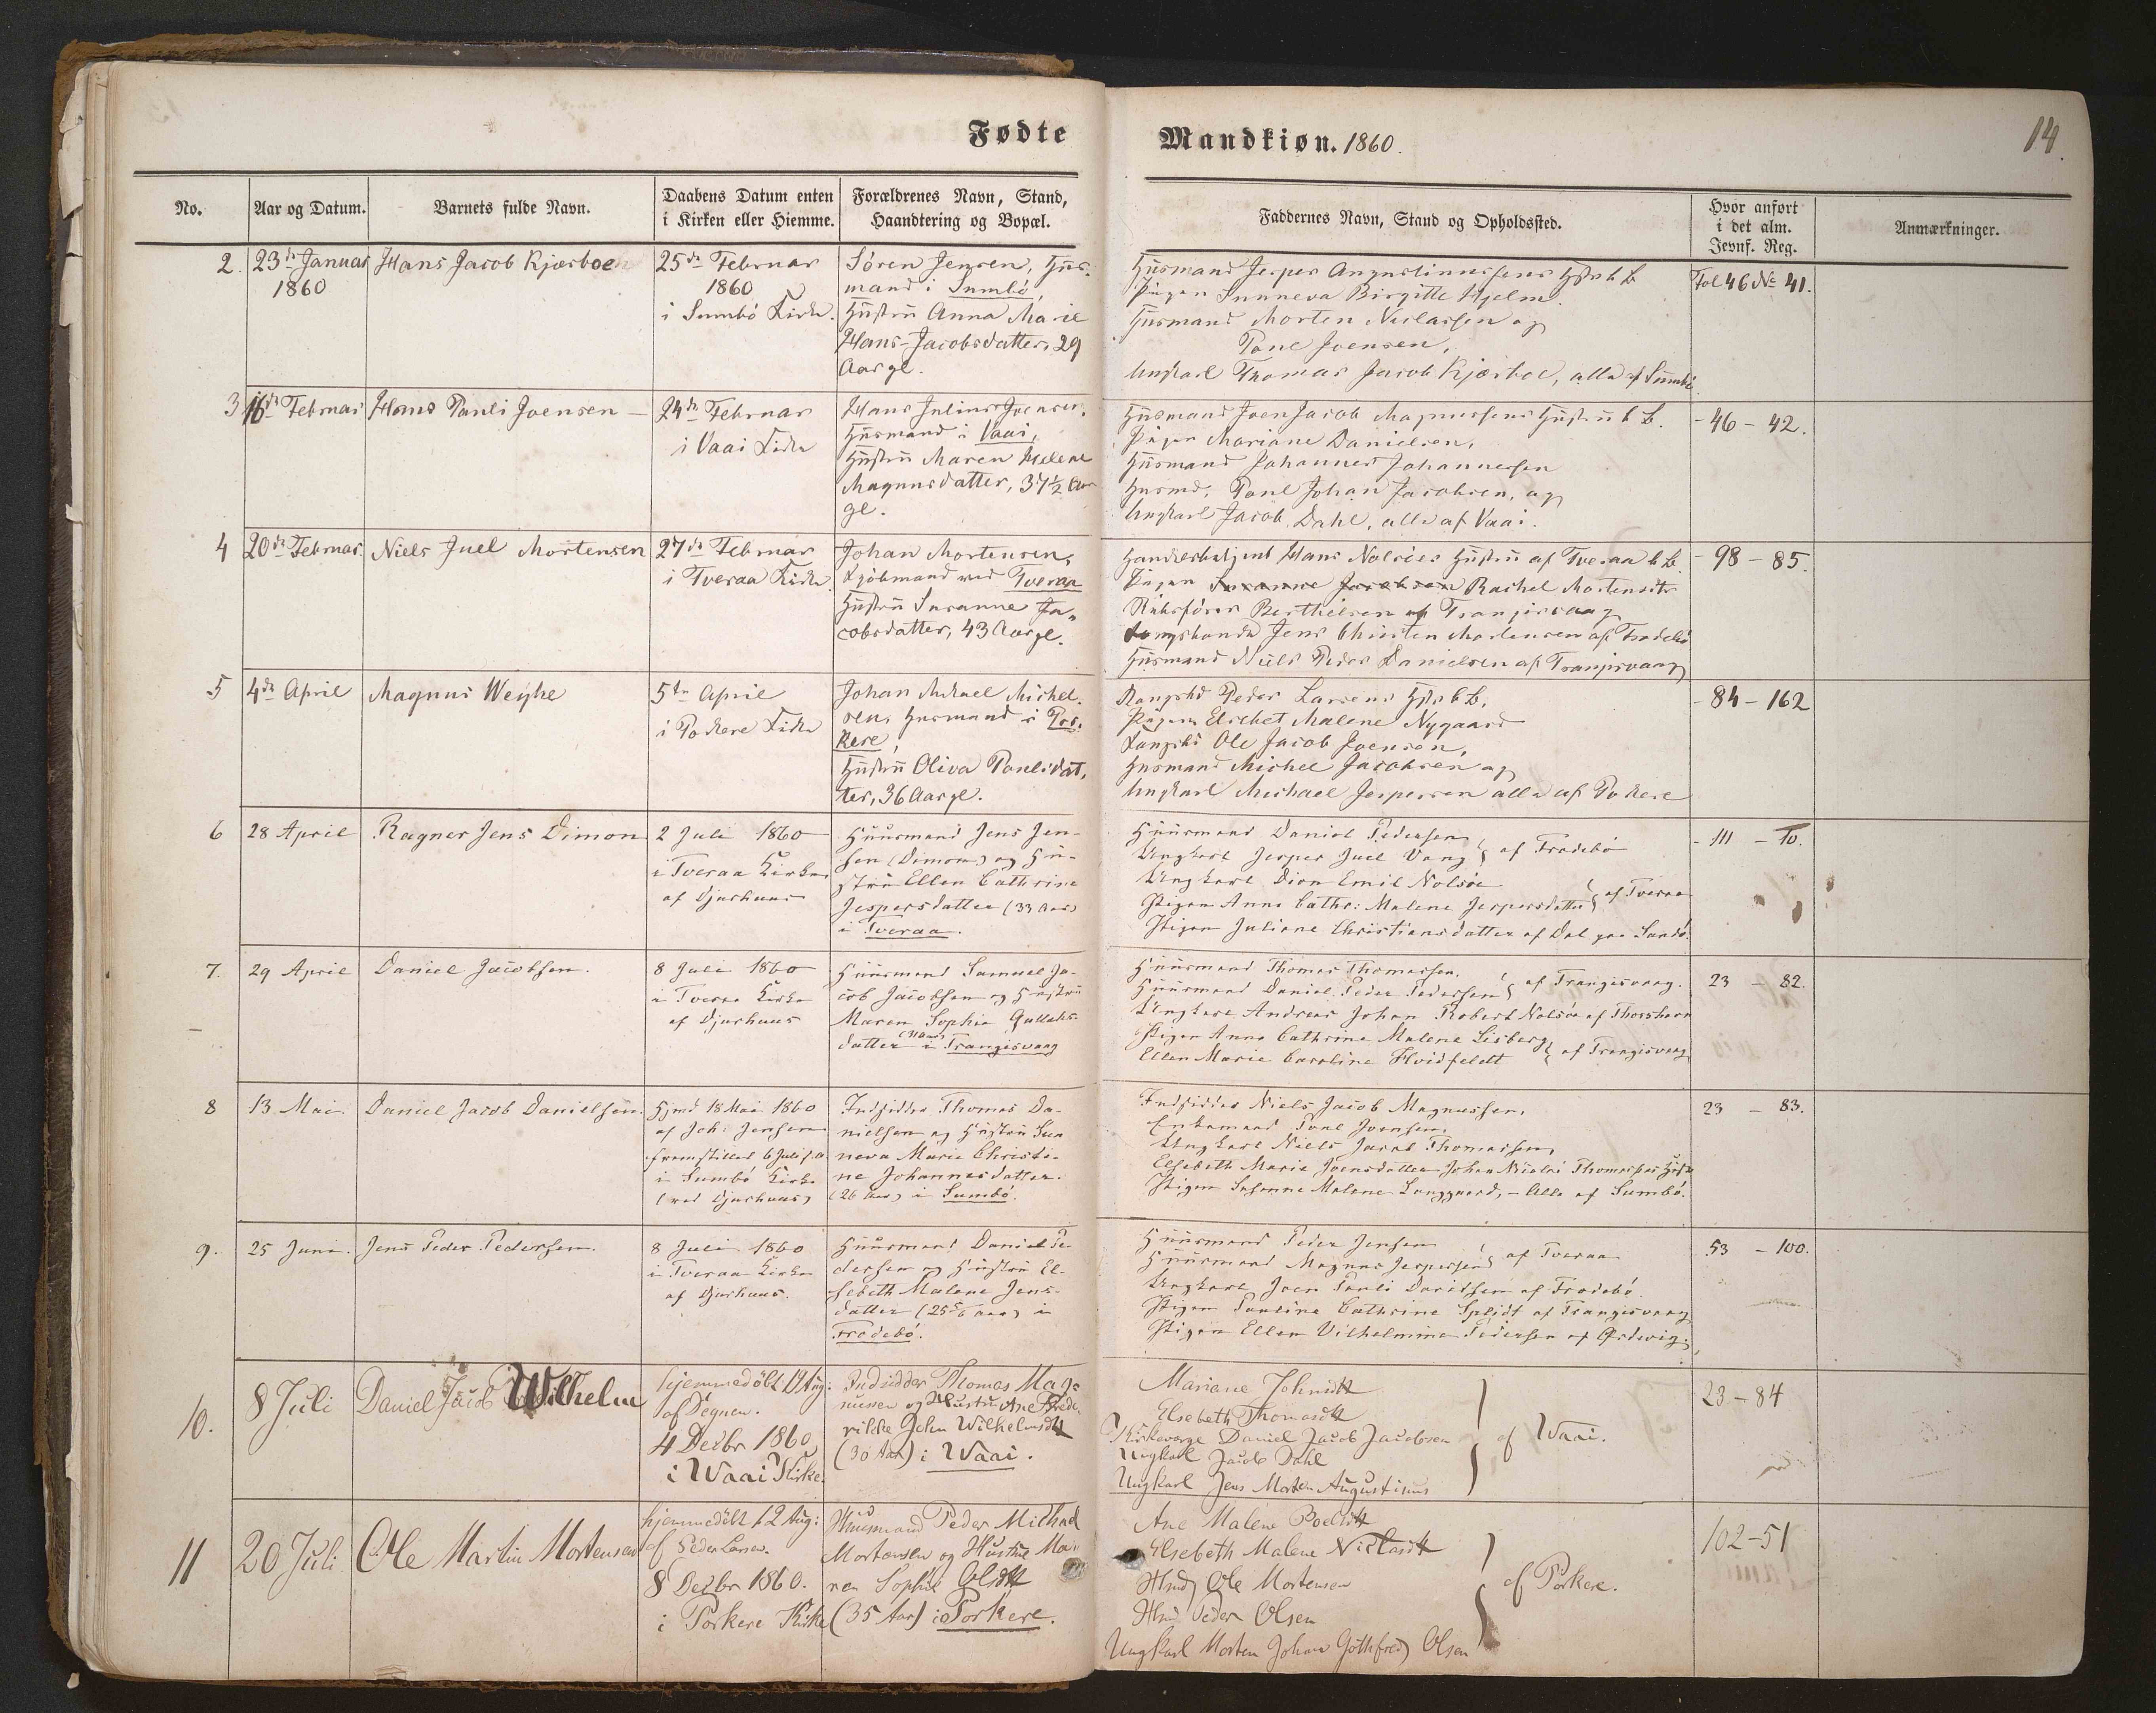 Fødte
Mandkiøn. 1860.
14.
No.
Aar og Datum.
Barnets fulde Navn.
Daabens Datum enten
i Kirken eller Hiemme.
Forældrenes Navn, Stand,
Haandtering og Bopæl.
Faddernes Navn, Stand og Opholdssted.
Hvor anført
i det alm.
Jevnf. Reg.
Anmærkninger.
2.
23de Januar
1860
Hans Jacob Kjærboe
25de Februar
1860
i Sumbö Kirke.
Sören Jensen, Hus-
mand i Sumbö,
Hustru Anna Marie
Hans-Jacobsdatter, 29
Aar gl.
Husmand Jesper Augustinussens Hstr b. B.
Pigen Sunneva Birgitte Hjelm.
Husmand Morten Niclassen og
Poul Joensen,
Ungkarl Thomas Jacob Kjærboe, alle af Sumbö
Fol 46 No 41.
3
16de Februar
Hans Pauli Joensen
24de Februar
i Vaai Kirke
Hans Julius Joensen,
Husmand i Vaai,
Hustru Maren Helene
Magnusdatter, 37½ Aar
gl.
Husmand Joen Jacob Magnussens Hustru b. B.
Pigen Mariane Danielsen,
Husmand Johannes Johannessen
Husmd. Poul Johan Jacobsen, og
Ungkarl Jacob Dahl, alle af Vaai.
- 46 - 42.
4
20de Februar.
Niels Juel Mortensen
27de Februar
i Tveraa Kirke.
Johan Mortensen,
Kjöbmand ved Tveraa
Hustru Susanne Ja-
cobsdatter, 43 Aar gl.
Handelsbetjent Hans Nolsöes Hustru af Tveraa b. B.
Pigen Susanne Jacobsen Rachel Mortensdtr
Berthelsen af Trangisvaag
Kongsbonde Jens Christen Mortensen af Frodebö
Husmand Niels Peder Danielsen af Trangisvaag
- 98 - 85.
5
4de April
Magnus Weyhe
5te April
i Porkere Kirke
Johan Michael Michel-
sen, Husmand i Por-
kere,
Hustru Oliva Poulsdat-
ter, 36 Aar gl.
Kongsbd Peder Larsens Hstr b. B.
Pigen Elsebet Malene Nygaard
Kongsbd Ole Jacob Joensen,
Husmand Michel Jacobsen og
Ungkarl Michael Jespersen alle af Porkere
- 84 - 162
6
28 April
Ragner Jens Dimon
2 Juli 1860
i Tveraa Kirke
af Djurhuus
Huusmand Jens Jen-
sen (Dimon) og Hu-
stru Ellen Cathrine
Jespersdatter (33 Aar)
i Tveraa.
Huusmand Daniel Pedersen
Ungkarl Jesper Juel Vang } af Frodebö
Ungkarl Dion Emil Nolsöe
Pigen Anna Cathr: Malene Jespersdatter } af Tveraa
Pigen Juliane Christiansdatter af Dal paa Sandö.
- 111 - 10.
7.
29 April
Daniel Jacobsen.
8 Juli 1860
i Tveraa Kirke
af Djurhuus
Huusmand Samuel Ja-
cob Jacobsen og Hustru
Maren Sophie Gullaks-
datter (31 Aar) i Trangisvaag
Huusmand Thomas Thomassen.
Huusmand Daniel Peder Pedersen } af Trangisvaag.
Ungkarl Andreas Johan Robert Nolsöe af Thorshavn
Pigen Anna Cathrine Malene Lisberg
Ellen Marie Caroline Hvidfeldt } af Trangisvaag
23 - 82.
8
13 Mai.
Daniel Jacob Danielsen.
Hjmd 18 Mai 1860
af Joh: Jensen
fremstillet 6 Juli s.A.
i Sumbö Kirke
(ved Djurhuus)
Indsidder Thomas Da-
nielsen og Hustru Sun
neva Marie Christi-
ne Johannesdatter.
(26 Aar) i Sumbö.
Indsidder Niels Jacob Magnussen,
Enkemand Poul Joensen,
Ungkarl Niels Jacob Thomassen,
Elsebeth Marie Joensdatter Johan Nicolai Thomassens Hstr
Pigen Susanne Malene Langgaard, - Alle af Sumbö.
23 - 83.
9.
25 Juni.
Jens Peder Pedersen.
8 Juli 1860
i Tveraa Kirke
af Djurhuus.
Huusmand Daniel Pe-
dersen og Hustru El-
sebeth Malene Jens-
datter (25 5/6 Aar) i
Frodebö.
Huusmand Peder Jensen
Huusmand Magnus Jespersen } af Tveraa
Ungkarl Joen Pauli Davidsen af Frodebö.
Pigen Pauline Cathrine Splidt af Trangisvaag
Pigen Ellen Vilhelmine Pedersen af Ørdevig.
53 - 100.
10.
8 Juli
Daniel Jacob Wilhelm
hjemmedöbt 19 Aug:
af Degnen.
4 Decbr 1860
i Waai Kirke.
Indsidder Thomas Mag-
nussen og Hustru Ane Frede-
rikke Wilhelmsdtt
(30 Aar) i Waai.
Mariane Schmidtt
Elsebeth Thomasdtt
Kirkeværge Daniel Jacob Jacobsen
Ungkarl Jacob Dahl
Ungkarl Jens Morten Augustinus
} af Waai.
23 - 84
11
20 Juli
Ole Martin Mortensen
hjemmedöbt 12 Aug:
af Peder Larsen.
8 Decbr 1860.
i Porkere Kirke
Huusmand Peder Michael
Mortensen og Hustru Ma-
ren Sophie Olsdtt
(35 Aar) i Porkere.
Ane Malene Poulsdtt
Elsebeth Malene Niclasdtt
Hmd Ole Mortensen
Hmd Peder Olsen
Ungkarl Morten Johan Gotthfred Olsen
} af Porkere.
102-51